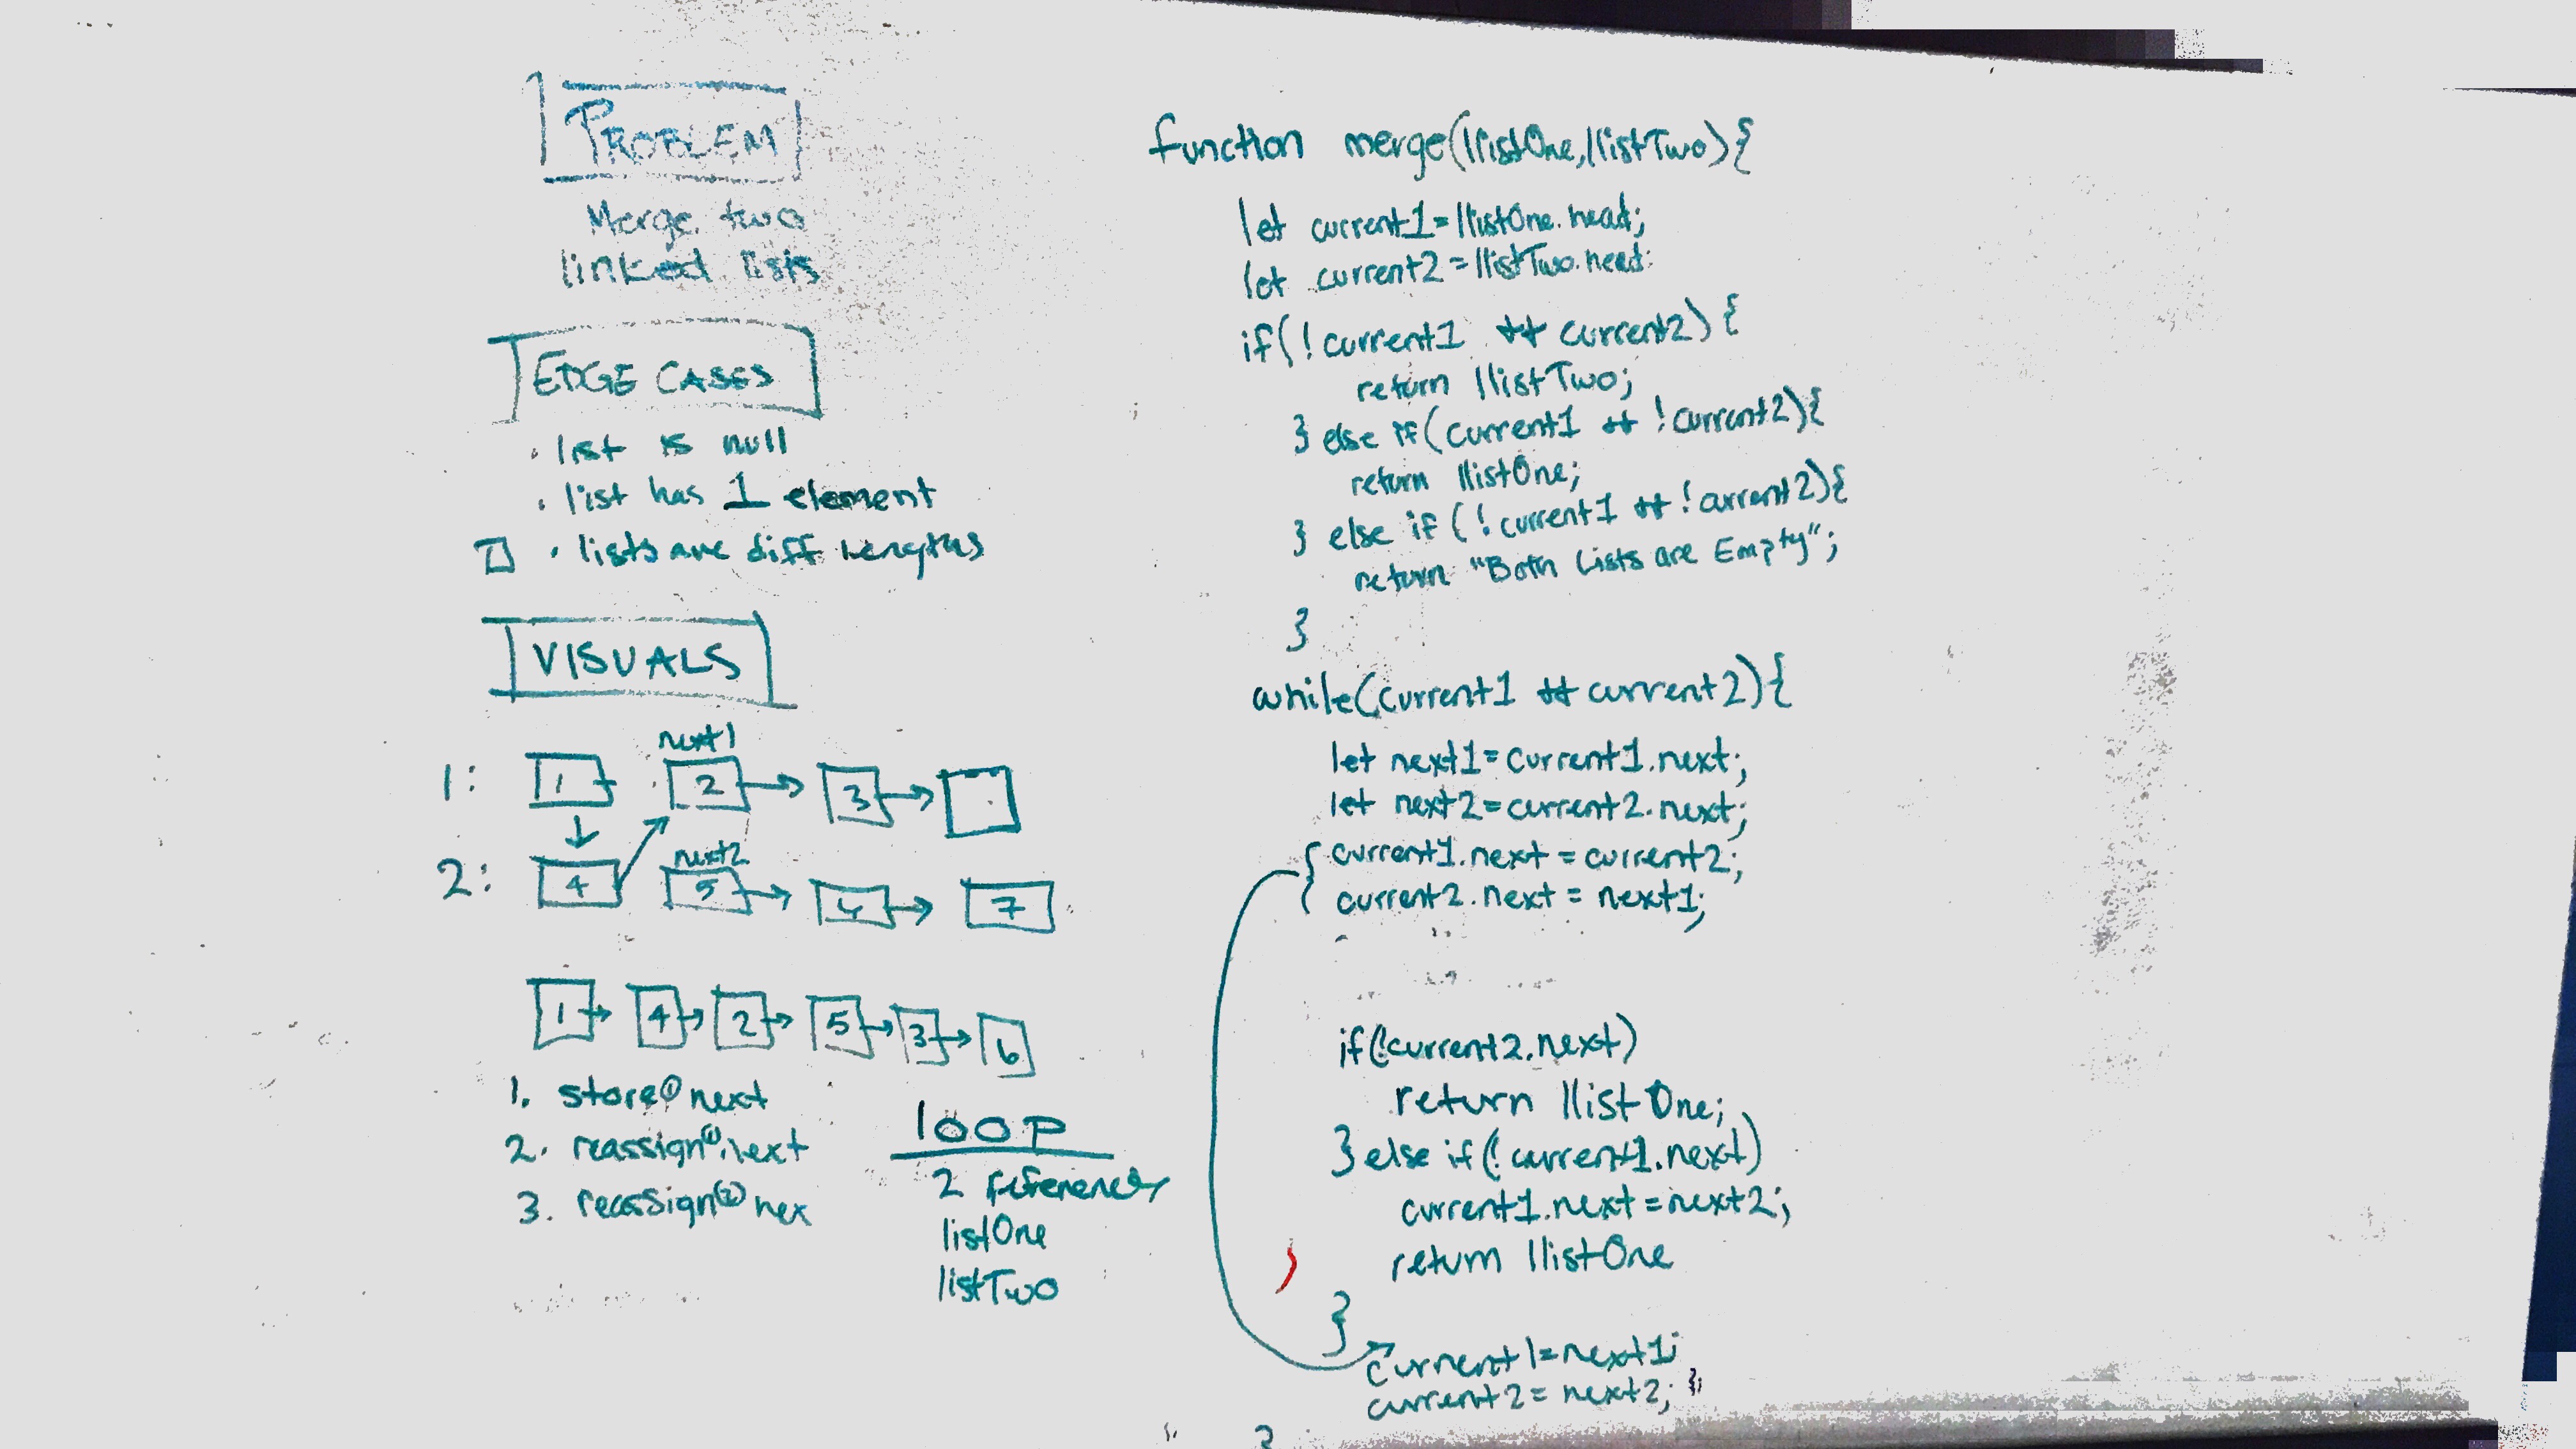 PROBLEM
Merge two
linked lists
EDGE CASES
· list is null
· list has 1 element
· lists are diff lengths
VISUALS
next1
1: 1 2 3
next2
2: 4 5 6 7
1 4 2 5 3 6
1. store ① next
2. reassign ① .next
3. reassign ② nex
loop
2
listOne
listTwo
function merge(llistOne,llistTwo){
let current1=llistOne.head;
let current2=llistTwo.head;
if(!current1 && current2){
return llistTwo;
} else if(current1 && !current2){
return llistOne;
} else if (!current1 && !current2){
return "Both Lists are Empty";
}
while(current1 && current2){
let next1=current1.next;
let next2=current2.next;
{ current1.next = current2;
current2.next = next1;
if(!current2.next)
return llistOne;
} else if(!current1.next)
current1.next = next2;
return llistOne
}
current1=next1;
current2=next2; };
}